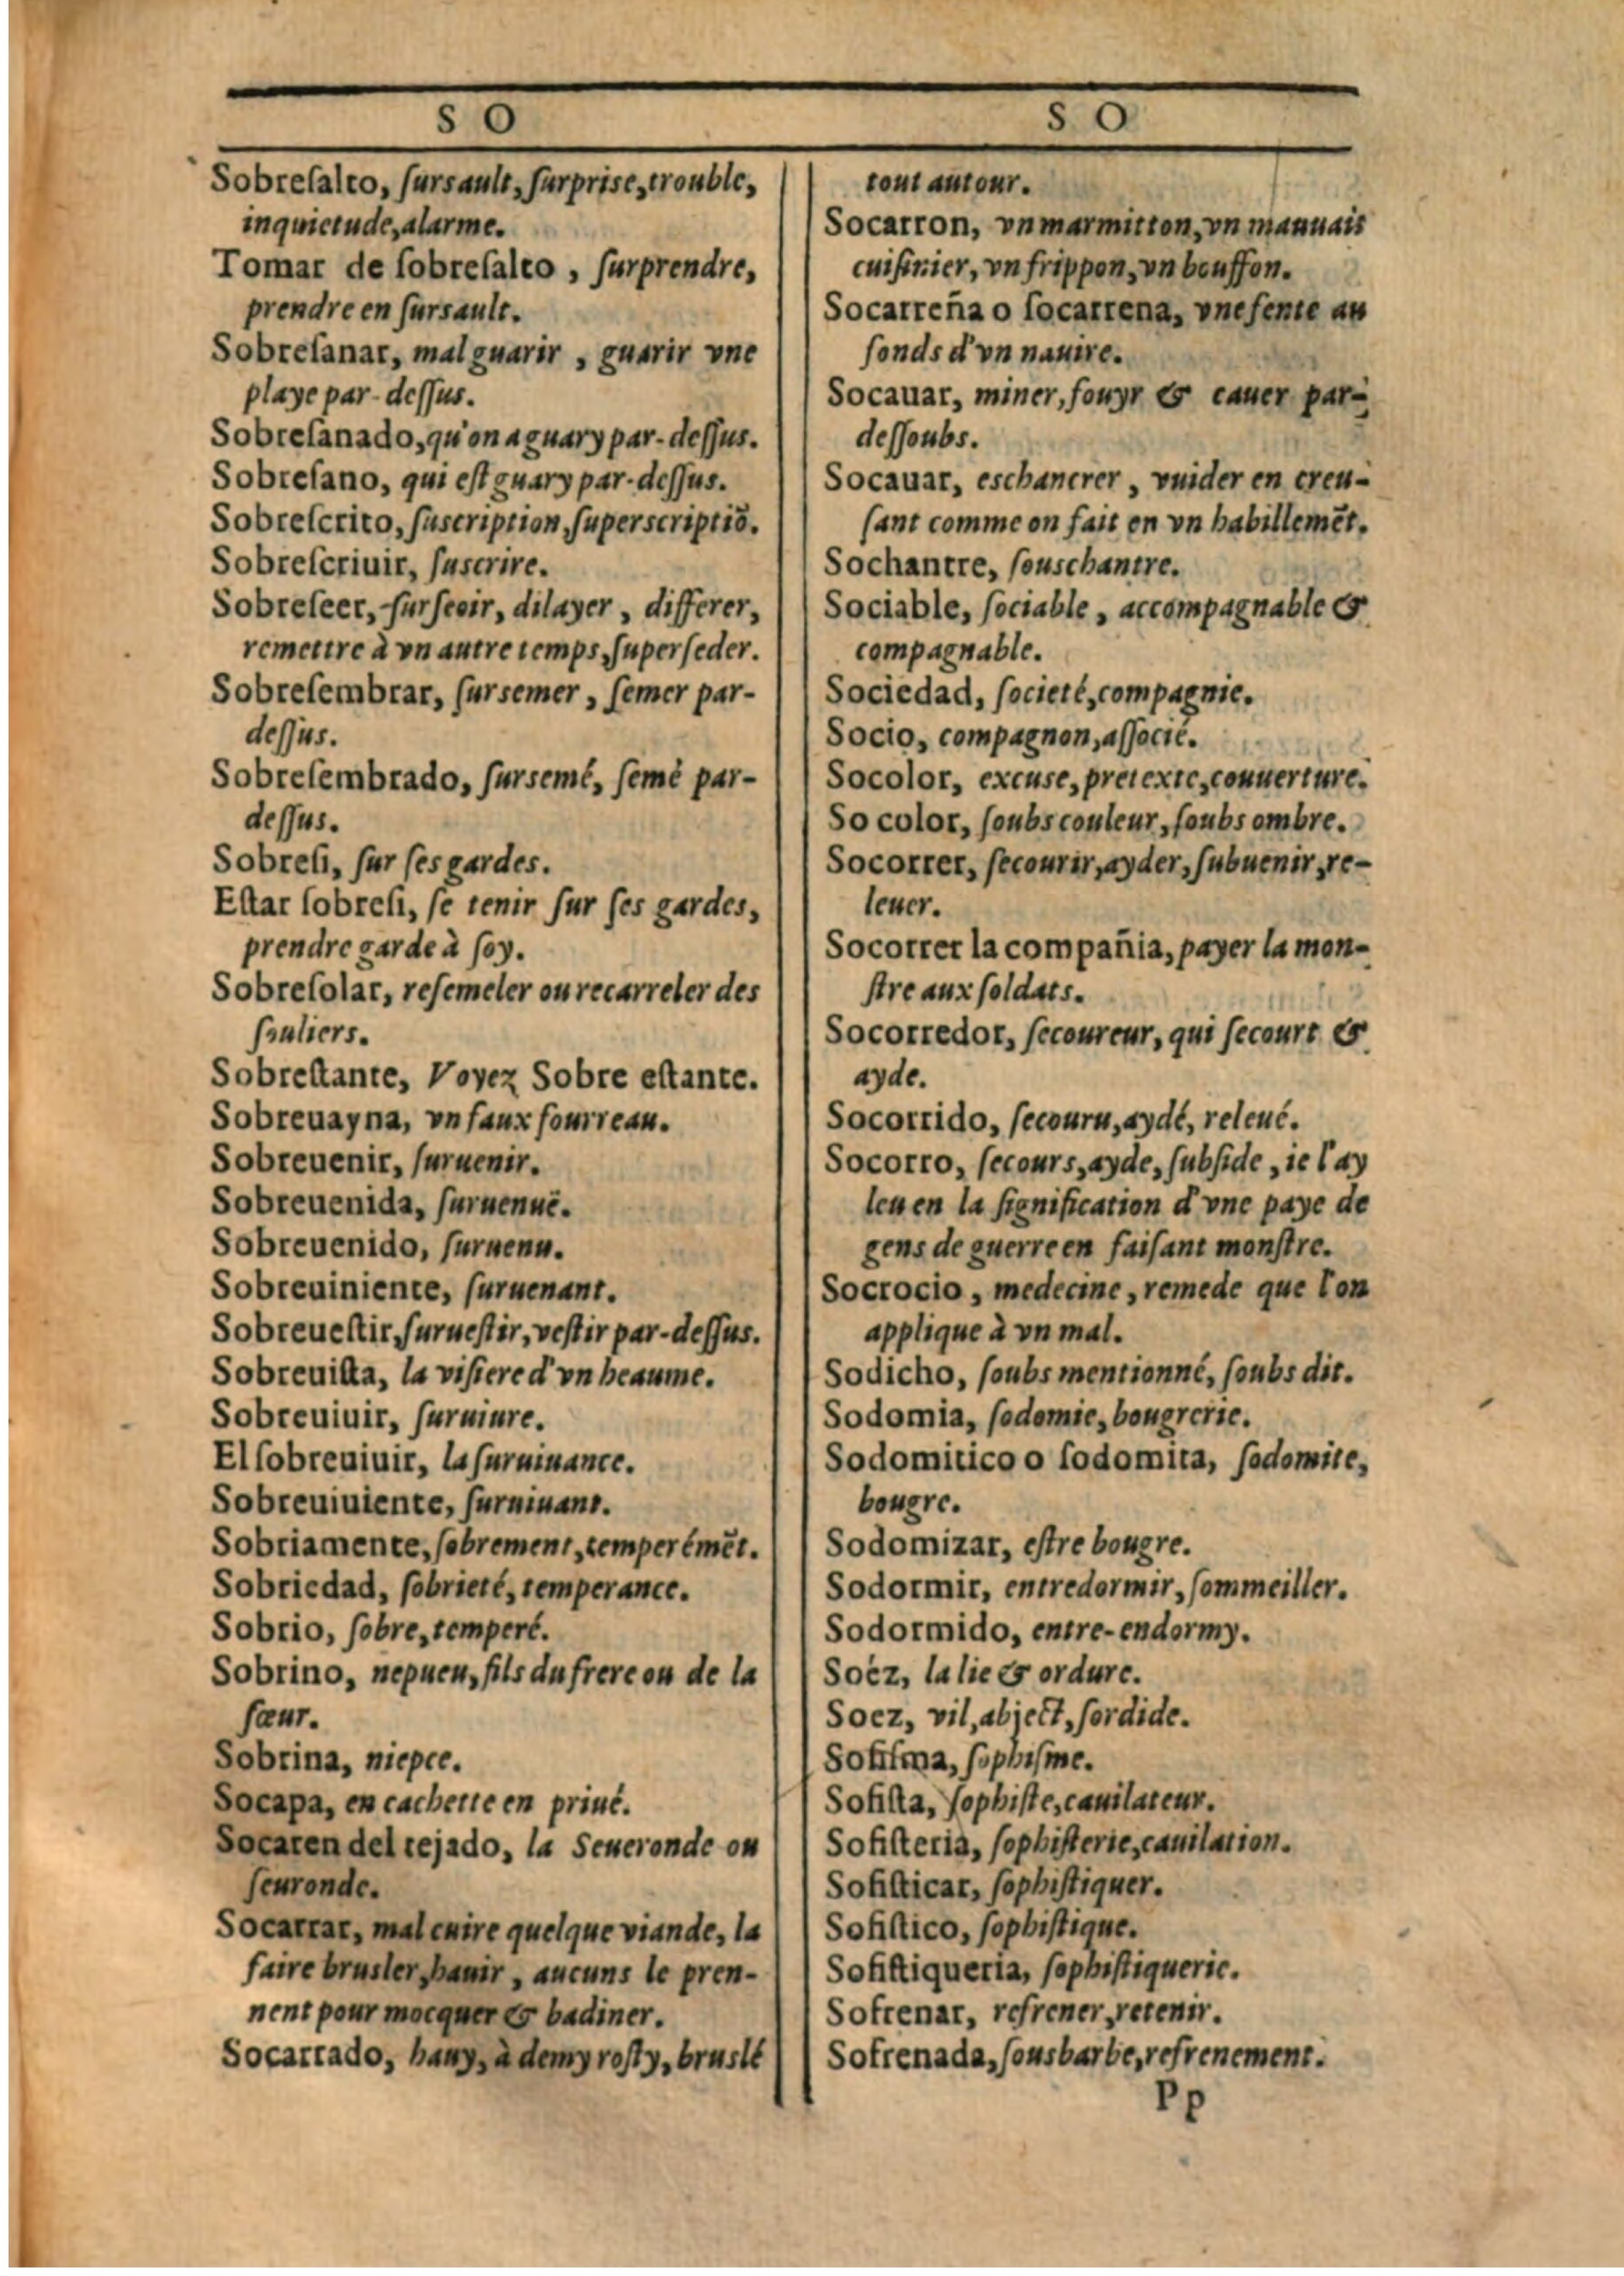 S O
Sobreſalto, ſursault, ſurprise, trouble,
inquietude, alarme.
Tomar de ſobreſalto, ſurprendre,
prendre en ſursault.
Sobreſanar, mal guarir, guarir vne
playe par-deſſus.
Sobreſanado, qu'on a guary par-deſſus.
Sobreſano, qui eſt guary par-deſſus.
Sobreſcrito, ſuscription, ſuperscriptiõ.
Sobreſcriuir, ſuscrire.
Sobreſeer, ſurſeoir, dilayer, differer,
remettre à vn autre temps, ſuperſeder.
Sobreſembrar, ſursemer, ſemer par-
deſſus.
Sobreſembrado, ſursemé, ſemé par-
deſſus.
Sobreſi, ſur ſes gardes.
Eſtar ſobreſi, ſe tenir ſur ſes gardes,
prendre garde à ſoy.
Sobreſolar, reſemeler ou recarreler des
ſouliers.
Sobreſtante, Voyez Sobre eſtante.
Sobreuayna, vn faux fourreau.
Sobreuenir, ſuruenir.
Sobreuenida, ſuruenuë.
Sobreuenido, ſuruenu.
Sobreuiniente, ſuruenant.
Sobreueſtir, ſurueſtir, veſtir par-deſſus.
Sobreuiſta, la viſiere d'vn heaume.
Sobreuiuir, ſuruiure.
El ſobreuiuir, la ſuruiuance.
Sobreuiuiente, ſuruiuant.
Sobriamente, ſobrement, temperémẽt.
Sobriedad, ſobrieté, temperance.
Sobrio, ſobre, temperé.
Sobrino, nepueu, fils du frere ou de la
ſœur.
Sobrina, niepce.
Socapa, en cachette en priué.
Socaren del tejado, la Seueronde ou
ſeuronde.
Socarrar, mal cuire quelque viande, la
faire brusler, hauir, aucuns le pren-
nent pour mocquer & badiner.
Socarrado, hauy, à demy roſty, bruslé
S O
tout autour.
Socarron, vn marmitton, vn mauuais
cuiſinier, vn frippon, vn bouffon.
Socarreña o ſocarrena, vne fente au
fonds d'vn nauire.
Socauar, miner, fouyr & cauer par-
deſſoubs.
Socauar, eschancrer, vuider en creu-
ſant comme on fait en vn habillemẽt.
Sochantre, ſouschantre.
Sociable, ſociable, accompagnable &
compagnable.
Sociedad, ſocieté, compagnie.
Socio, compagnon, aſſocié.
Socolor, excuse, pretexte, couuerture.
So color, ſoubs couleur, ſoubs ombre.
Socorrer, ſecourir, ayder, ſubuenir, re-
leuer.
Socorrer la compañia, payer la mon-
ſtre aux ſoldats.
Socorredor, ſecoureur, qui ſecourt &
ayde.
Socorrido, ſecouru, aydé, releué.
Socorro, ſecours, ayde, ſubſide, ie l'ay
leu en la ſignification d'vne paye de
gens de guerre en faiſant monſtre.
Socrocio, medecine, remede que l'on
applique à vn mal.
Sodicho, ſoubs mentionné, ſoubs dit.
Sodomia, ſodomie, bougrerie.
Sodomitico o ſodomita, ſodomite,
bougre.
Sodomizar, eſtre bougre.
Sodormir, entredormir, ſommeiller.
Sodormido, entre-endormy.
Soéz, la lie & ordure.
Soez, vil, abject, ſordide.
Sofiſma, ſophiſme.
Sofiſta, ſophiſte, cauilateur.
Sofiſteria, ſophiſterie, cauilation.
Sofiſticar, ſophiſtiquer.
Sofiſtico, ſophiſtique.
Sofiſtiqueria, ſophiſtiquerie.
Sofrenar, refrener, retenir.
Sofrenada, ſousbarbe, refrenement.
Pp